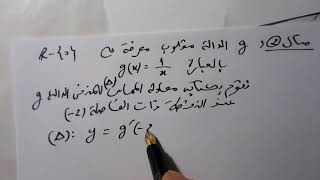 مثال②: g الدالة مقلوب معرفة على R-{0}
بالعبارة g(x) = 1/x
نقوم بحساب معادلة المماس للمنحنى الدالة g
عند النقطة ذات الفاصلة (-2)
(Δ): y = g'(-2